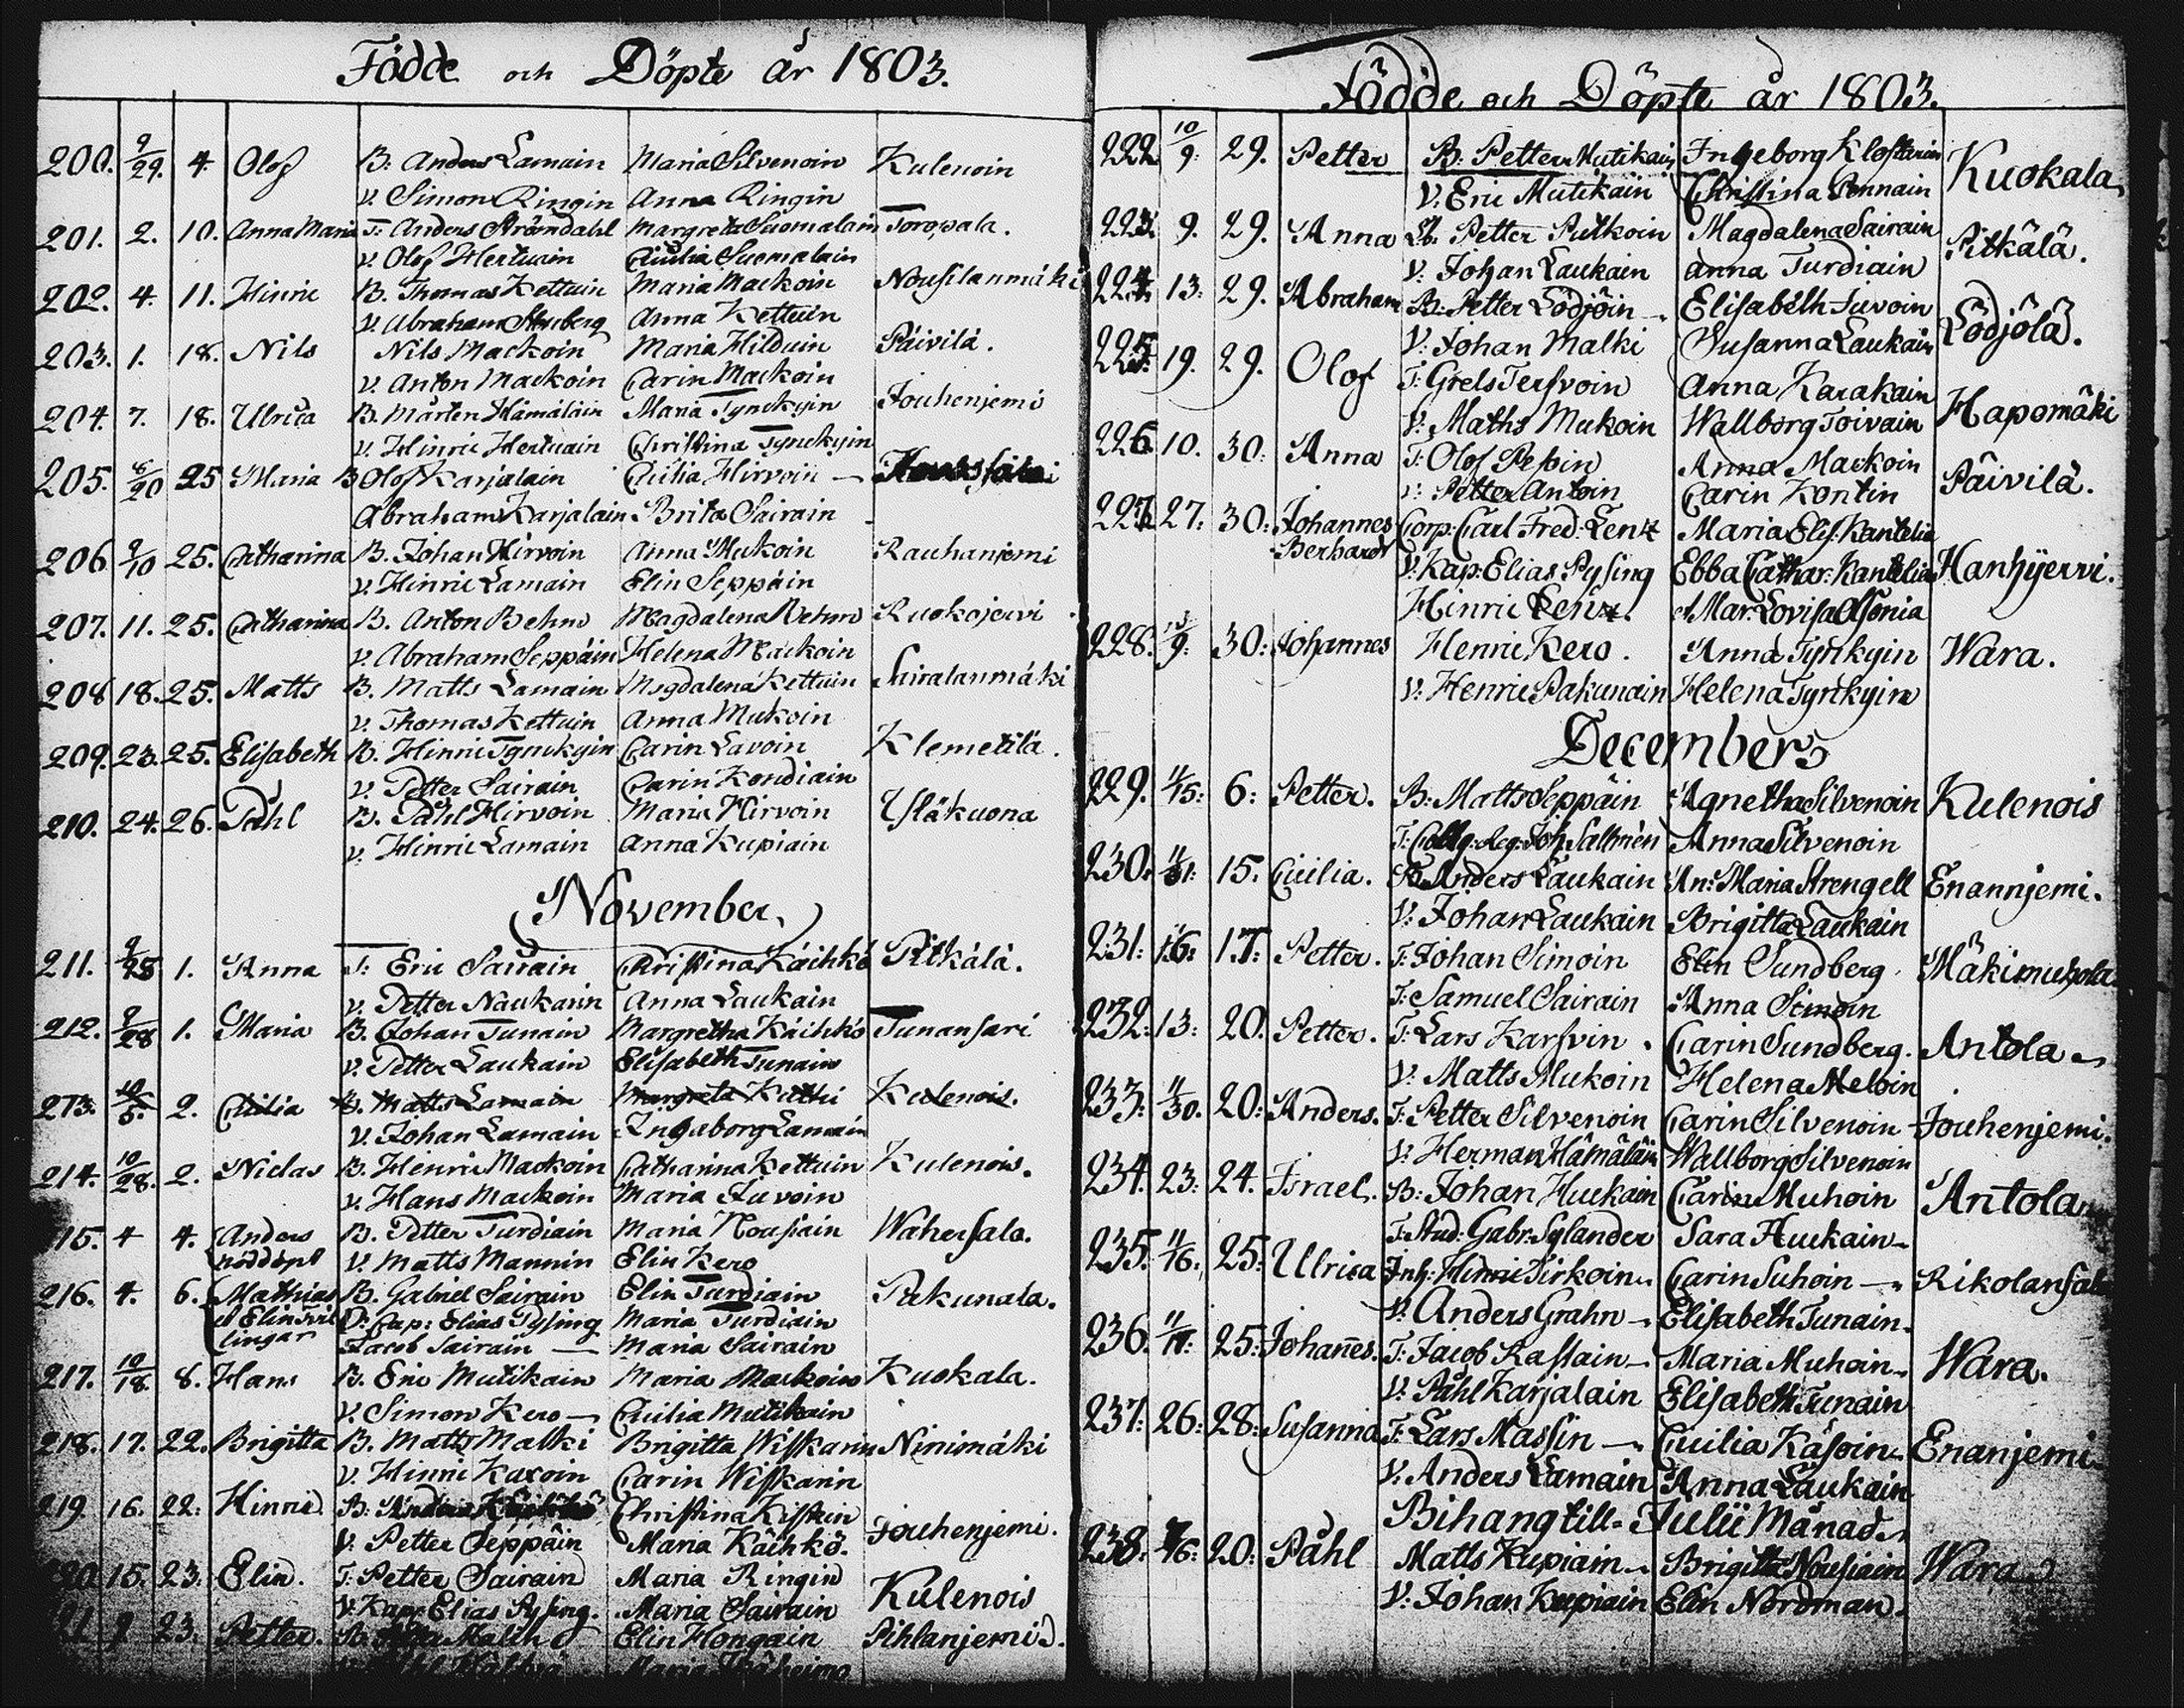 Födde och Döpte år 1803.
200. 9/29. 4. Olof B. Anders Lamain Maria Silvenoin Kulenoin
V. Simon Ringin Anna Ringin
201. 2. 10. Anna Maria T. Anders Strömdahl Margreta Suomalain Toropala.
V. Olof Hertuin Cicilia Suomalain
202. 4. 11. Hinric B. Thomas Kettuin Maria Mackoin Nousilanmäki
V. Abraham Anna Kettuin
203. 1. 18. Nils Nils Mackoin Maria Hilduin Päivilä.
V. Anton Mackoin Carin Mackoin
204. 7. 18. Ulrica B. Mårten Hämäläin Maria Tynckyin Jouhenjemi
V. Hinric Hertuain Christina Tynckyin
205. 8/20 25 Maria B Olof Karjalain Cicilia Hirvoin
Abraham Karjalain Brita Sairain
206. 9/10 25. Catharina B. Johan Hirvoin Anna Mukoin Rauhanjemi
V. Hinric Lamain Elin Seppäin
207. 11. 25. Catharina B. Anton Behm Magdalena Behm Ruokojervi
V. Abraham Seppäin Helena Mackoin
208 18. 25. Matts B. Matts Lamain Magdalena Kettuin Sairalanmäki
V. Thomas Kettuin Anna Mukoin
209. 23. 25. Elisabeth B. Hinric Tynckyin Carin Lavoin Klemetilä.
V. Petter Sairain Carin Kondiain
210. 24. 26. Påhl B. Påhl Hirvoin Maria Hirvoin Ylläkuona
V. Hinric Lamain Anna Kupiain
November.
211. 9/25 1. Anna T. Eric Sairain Christina Käihkö Pitkälä.
V. Petter Naukarin Anna Laukain
212. 9/28 1. Maria B. Johan Tunain Margretha Käihkö Tunansari
V. Petter Laukain Elisabeth Tunain
213. 10/5. 2. Cicilia B. Matts Lamain Margreta Kulenois.
V. Johan Lamain Ingeborg Lamain
214. 10/28. 2. Niclas B. Hinric Mackoin Catharina Kettuin Kulenois.
V. Hans Mackoin Maria Juvoin
15. 4 4. Anders B. Petter Turdiain Maria Nousiain Wahersala.
nöddöpt V. Matts Mannin Elin Kero
216. 4. 6. Mathias B. Gabriel Sairain Elin Turdiain Pakunala.
et Elin tvil V. Cap: Elias Pysing Maria Turdiain
lingar Jacob Sairain Maria Sairain
217. 10/18. 8. Hans B. Eric Mutikain Maria Mackoin Kuokala.
V. Simon Kero Cicilia Mutikain
218. 17. 22. Brigitta B. Matts Malki Brigitta Wiskarin Ninimäki
V. Hinric Karoin Carin Wiskarin
219 16. 22: Hinric B. Anders Christina Kiskin Jouhenjemi.
V. Petter Seppäin Maria Käihkö.
20 15. 23. Elin. T. Petter Sairain Maria Ringin Kulenois
V. Kap: Elias Pysing. Maria Sairain
21. 9 23. Petter. B. Malin Elin Hongain Pihlanjemi.
Maria
Födde och Döpte år 1803.
222. 10/9: 29. Petter B. Petter Mutikain Ingeborg Klostarin Kuokala
V. Eric Mutikain Christina Pennain
223. 9. 29. Anna Lb. Petter Putkoin Magdalena Sairain Pitkälä.
V. Johan Laukain Anna Turdiain
224. 13: 29. Abraham B. Petter Lödjöin Elisabeth Juvoin Lödjölä.
V. Johan Malki Susanna Laukain
225. 19. 29. Olof T. Grels Tersvoin Anna Karakain Hapomäki
V. Maths Mukoin Wallborg Toivain
226 10. 30: Anna T. Olof Pesoin Anna Mackoin Päivilä.
V. Petter Antoin Carin Kontin
227. 27: 30: Johannes Corp: Carl Fred: Lentz Maria Elis: Kantelia Hanhijervi.
Berhard V. Kap: Elias Pysing Ebba Cathar: Kantelia
Hinric Lentz. et Mar. Lovisa Alfonia
228. 9: 30: Johannes Henric Kero. Anna Tynkyin Wara.
V. Henric Pakunain Helena Tynkyin
December
229. 11/15: 6: Petter. B. Matts Seppäin Agnetha Silvenoin Kulenois
T: Collg: Reg: Joh. Sallmén Anna Silvenoin
230. 11. 15. Cicilia. B. Anders Laukain An: Maria Strengell Enannjemi.
V. Johan Laukain Brigitta Laukain
231: 16: 17: Petter. T. Johan Simoin Elin Sundberg. Mäkimuhola
T: Samuel Sairain Anna Simoin
232: 13: 20. Petter. T: Lars Karsvin. Carin Sundberg. Antola
V. Matts Mukoin Helena Meloin
233: 11/30. 20: Anders. T: Petter Silvenoin Carin Silvenoin Jouhenjemi.
V. Herman Hämäläin Wallborg Silvenoin
234. 23: 24. Israel. B: Johan Huckain Carin Muhoin Antola
T. Stud: Gabr: Sylander Sara Huckain
235. 11/16. 25: Ulrica Inh: Hinric Pirkoin Carin Suhoin Rikolansal
V. Anders Grahn Elisabeth Tunain.
236. 11/11. 25: Johanes. T: Jacob Rastain Maria Muhain Wara.
V. Påhl Karjalain Elisabeth Tunain
237: 26: 28: Susanna T. Lars Massin Cicilia Käsoin Enanjemi
V. Anders Lamain Anna Laukain
Bihang till Julii Månad
238: 7/16: 20: Påhl Matts Kupiain Brigitta Nousiain Wara
V. Johan Kupiain Elin Nordman.